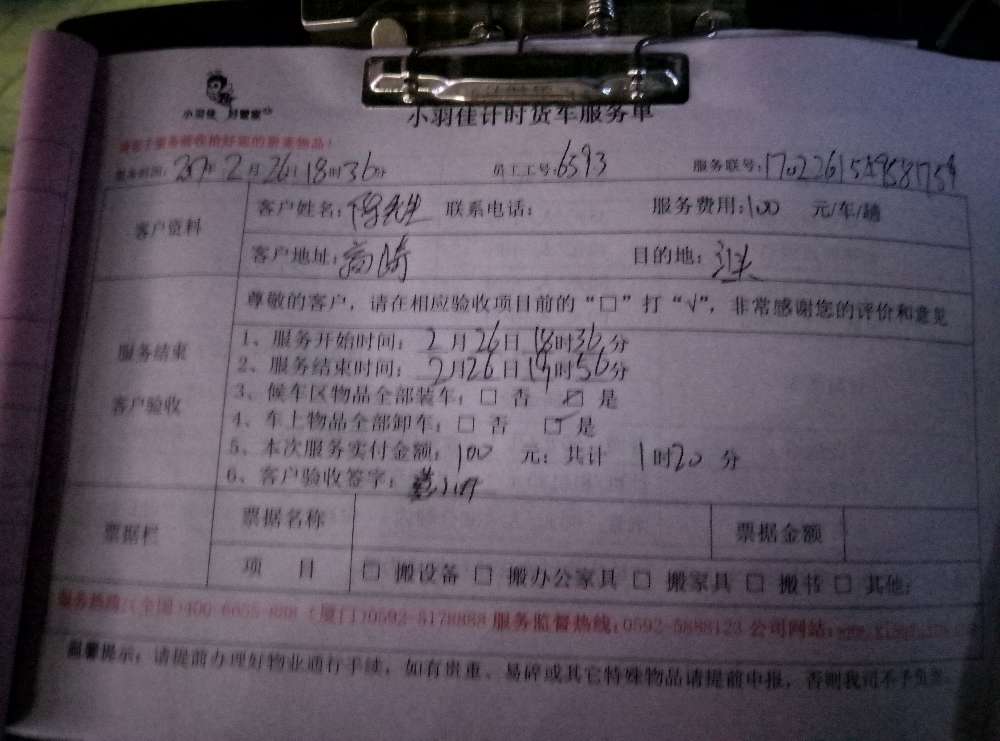 小羽佳 好管家
小羽佳计时货车服务单
服务时间: 2017年 2月 26日 18时 36分 员工工号: 6593 服务联号:
客户资料
客户姓名: 联系电话: 服务费用: 100 元/车/趟
客户地址: 高崎 目的地:
尊敬的客户，请在相应验收项目前的“□”打“√”，非常感谢您的评价和意见
服务结束
客户验收
1、服务开始时间: 2月26日 18时36分
2、服务结束时间: 2月26日 19时56分
3、候车区物品全部装车: □ 否 ☑ 是
4、车上物品全部卸车: □ 否 ☑ 是
5、本次服务实付金额: 100 元; 共计 1时20分
6、客户验收签字:
票据栏
票据名称 票据金额
项 目 □ 搬设备 □ 搬办公家具 □ 搬家具 □ 搬书 □ 其他:
服务热线:(全国)400-6655-888 (厦门)0592-5178888 服务监督热线:0592-5888123 公司网站:
温馨提示: 请提前办理好物业通行手续, 如有贵重、易碎或其它特殊物品请提前申报, 否则我司不予负责